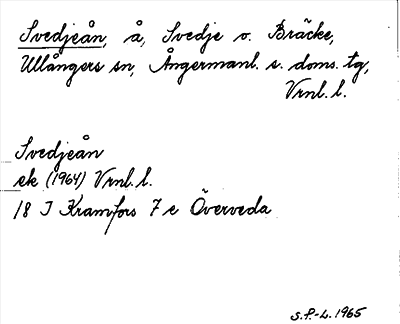 Svedjeån, å, Svedje o. Bräcke,
Ullångers sn, Ångermanl. s. doms. tg,
Vrnl. l.
Svedjeån
ek (1964) Vrnl. l.
18 I Kramfors 7 e Överveda
S.P-L. 1965